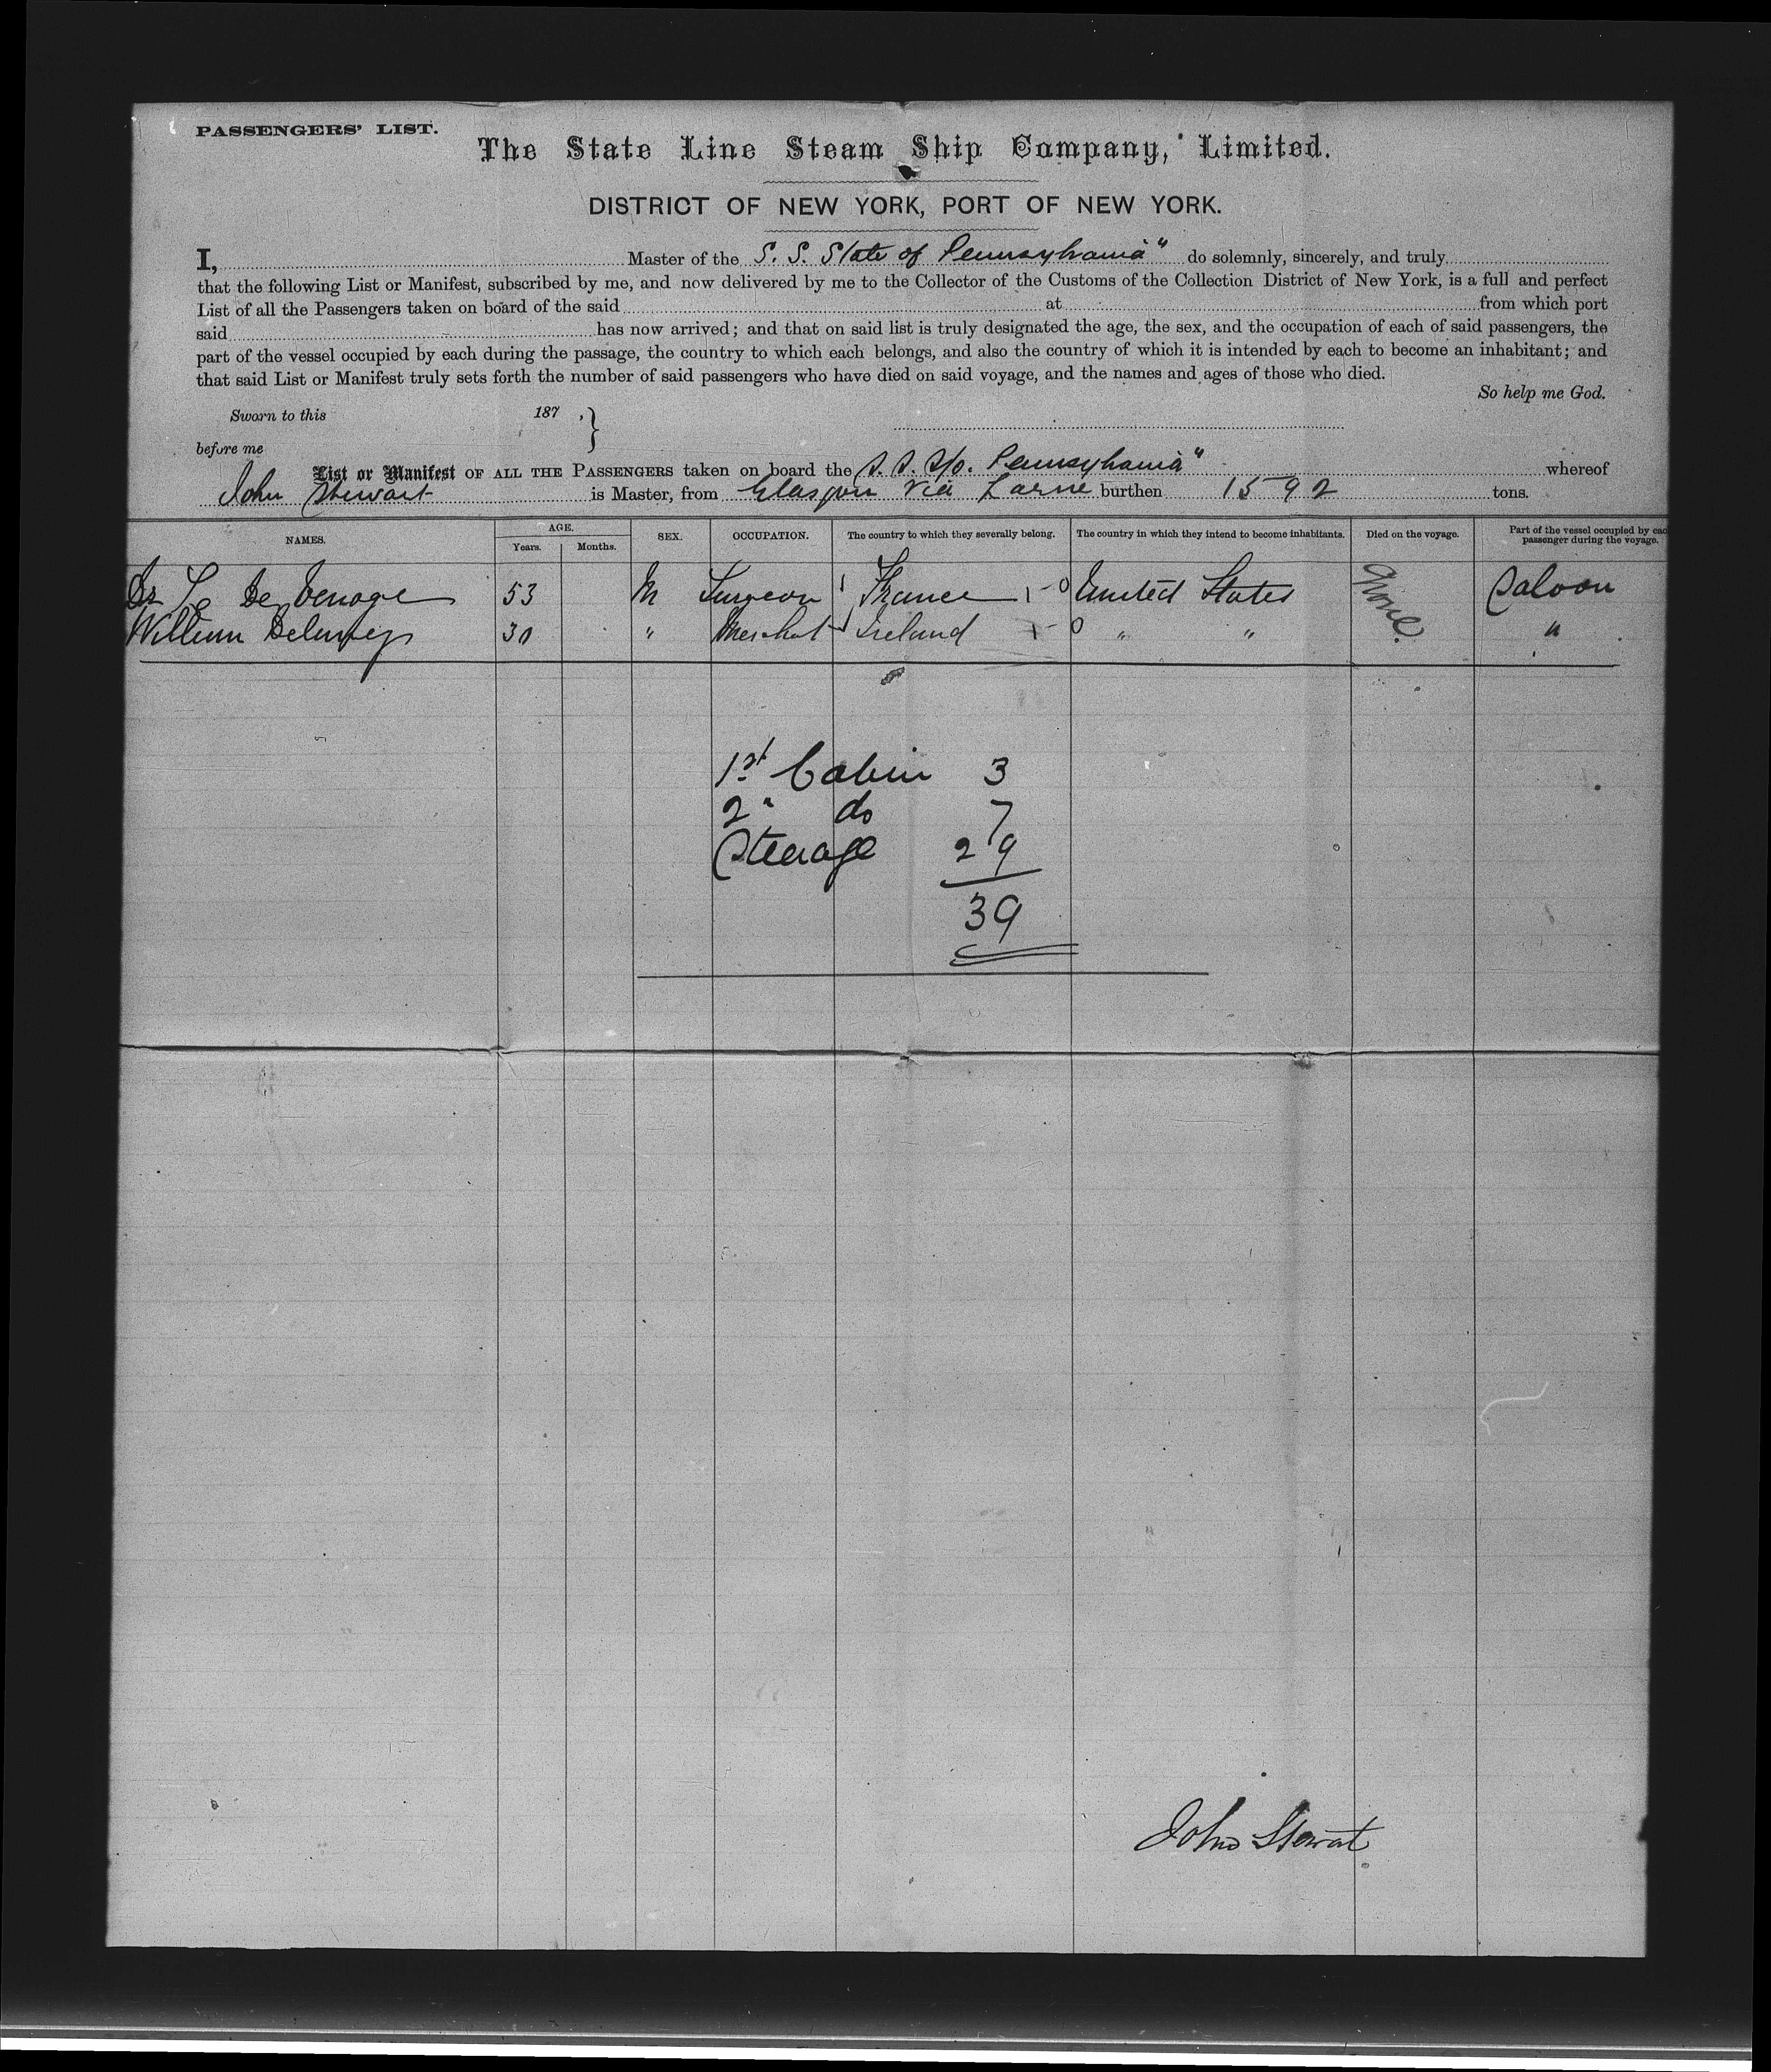 PASSENGERS' LIST.
The State Line Steam Ship Company, Limited.
DISTRICT OF NEW YORK, PORT OF NEW YORK.
I, Master of the S. S. State of Pennsylvania" do solemnly, sincerely, and truly
that the following List or Manifest, subscribed by me, and now delivered by me to the Collector of the Customs of the Collection District of New York, is a full and perfect
List of all the Passengers taken on board of the said at from which port
said has now arrived; and that on said list is truly designated the age, the sex, and the occupation of each of said passengers, the
part of the vessel occupied by each during the passage, the country to which each belongs, and also the country of which it is intended by each to become an inhabitant; and
that said List or Manifest truly sets forth the number of said passengers who have died on said voyage, and the names and ages of those who died.
So help me God.
Sworn to this 187 , }
before me
List or Manifest OF ALL THE PASSENGERS taken on board the S. S. S/o. Pennsylvania" whereof
John Stewart is Master, from Glasgow via Larne burthen 1592 tons.
NAMES. AGE. SEX. OCCUPATION. The country to which they severally belong. The country in which they intend to become inhabitants. Died on the voyage. Part of the vessel occupied by each passenger during the voyage.
Years. Months.
Dr De 53 M Surgeon France 1-0 United States None. Saloon
William 30 " Merchat Ireland 0 " " "
1st Cabin 3
2" do 7
Steerage 29
39
John Stewart